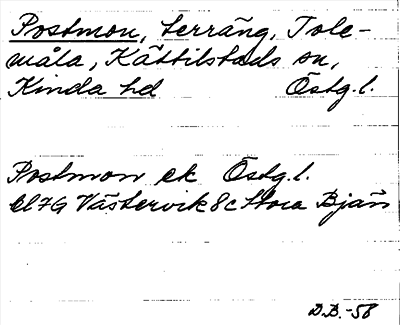 Postmon, terräng, Tole-
måla, Kättilstads sn,
Kinda hd Östg.l.
Postmon ek Östg.l.
Bl 7G Västervik 8c Stora Bjän
D.B.-58